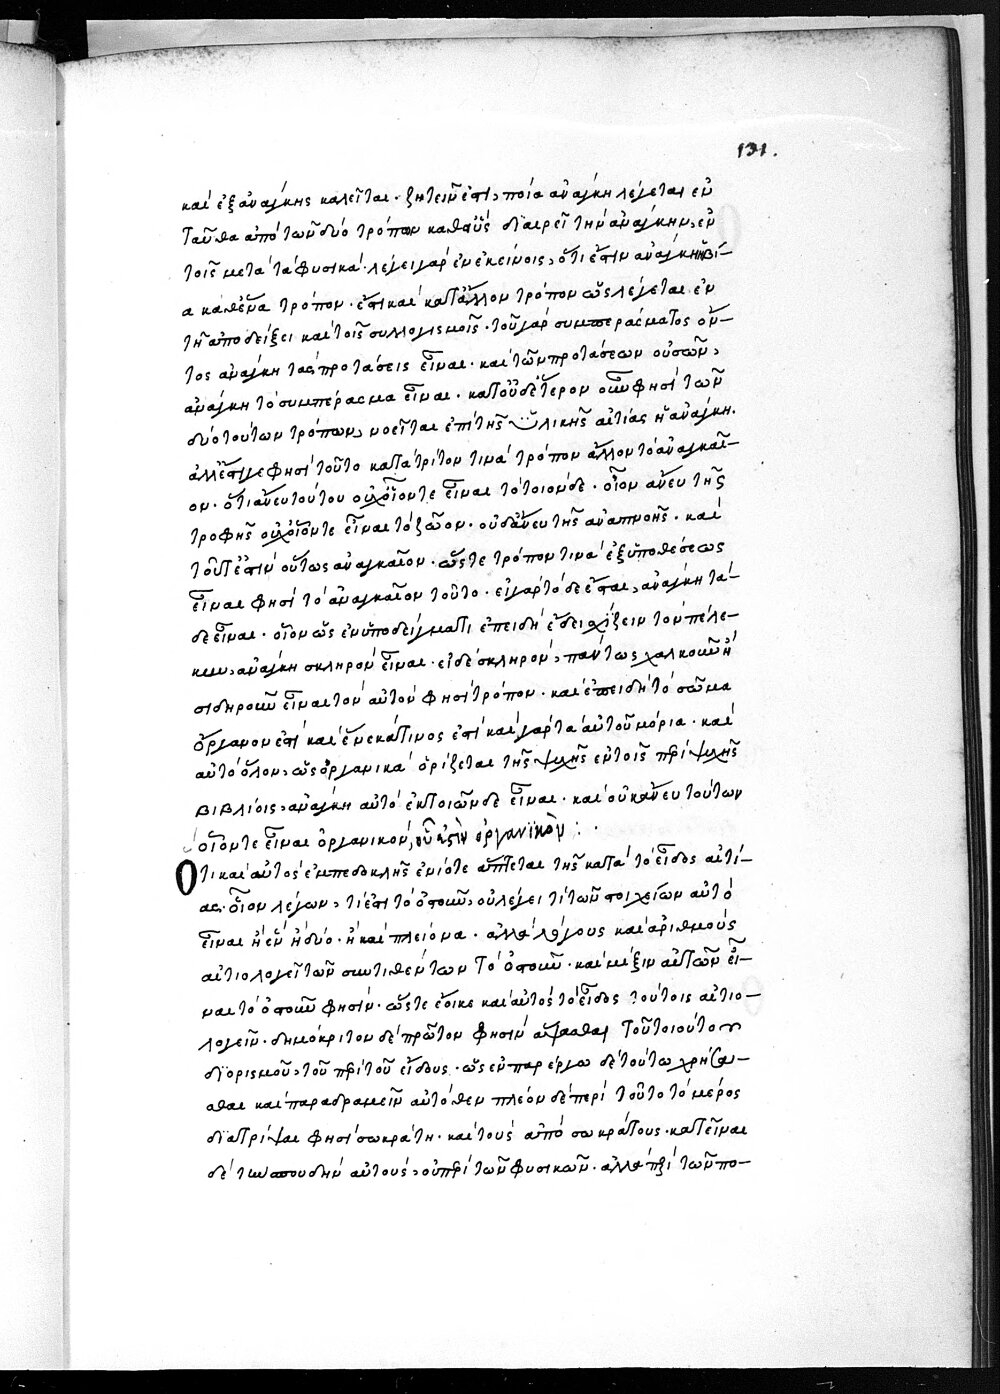 131.
καὶ ἐξ ἀνάγκης καλεῖται· ζητεῖν ἐστι, ποία ἀνάγκη λέγεται ἐν
ταῦθα ἀπὸ τῶν δύο τρόπων καθ' οὓς διαιρεῖ τὴν ἀνάγκην, ἐν
τοῖς μετὰ τὰ φυσικά· λέγει γὰρ ἐν ἐκείνοις, ὅτι ἔστιν ἀνάγκη ἡ βί-
α καθ' ἕνα τρόπον· ἔστι καὶ κατ' ἄλλον τρόπον ὡς λέγεται ἐν
τῇ ἀποδείξει καὶ τοῖς συλλογισμοῖς· τοῦ γὰρ συμπεράσματος ὄν-
τος ἀνάγκη τὰς προτάσεις εἶναι· καὶ τῶν προτάσεων οὐσῶν,
ἀνάγκη τὸ συμπέρασμα εἶναι· κατ' οὐδέτερον οὖν φησὶ τῶν
δύο τούτων τρόπων, νοεῖται ἐπὶ τῆς ὑλικῆς αἰτίας ἡ ἀνάγκη.
ἀλλ' ἔστι γε φησὶ τοῦτο κατὰ τρίτον τινὰ τρόπον ἄλλον τὸ ἀναγκαῖ-
ον· ὅτι ἄνευ τούτου οὐχ οἷόν τε εἶναι τὸ τοιόνδε· οἷον ἄνευ τῆς
τροφῆς οὐχ οἷόν τε εἶναι τὸ ζῶον· οὐδ' ἄνευ τῆς ἀναπνοῆς· καὶ
τοῦτ' ἐστὶν οὕτως ἀναγκαῖον· ὥστε τρόπον τινὰ ἐξ ὑποθέσεως
εἶναι φησὶ τὸ ἀναγκαῖον τοῦτο· εἰ γὰρ τόδε ἔσται, ἀνάγκη τά-
δε εἶναι· οἷον ὡς ἐν ὑποδείγματι ἐπειδὴ ἔδει σχίζειν τὸν πέλε-
κυν, ἀνάγκη σκληρὸν εἶναι· εἰ δὲ σκληρὸν, πάντως χαλκοῦν ἢ
σιδηροῦν εἶναι τὸν αὐτὸν φησὶ τρόπον· καὶ ἐπειδὴ τὸ σῶμα
ὄργανόν ἐστι καὶ ἕνεκά τινός ἐστι καὶ γὰρ τὰ αὐτοῦ μόρια· καὶ
αὐτὸ ὅλον, ὡς ὀργανικὰ ὁρίζεται τῆς ψυχῆς ἐν τοῖς περὶ ψυχῆς
βιβλίοις, ἀνάγκη αὐτὸ ἐκ τοιῶνδε εἶναι· καὶ οὐκ ἄνευ τούτων
οἷόν τε εἶναι ὀργανικόν, οὗ ἐστὶν ὀργανικὸν :·
Ὅτι καὶ αὐτὸς ἐμπεδοκλῆς ἐνίοτε ἅπτεται τῆς κατὰ τὸ εἶδος αἰτί-
ας· οἷον λέγων, τί ἐστι τὸ ὀστοῦν, οὐ λέγει τὶ τῶν στοιχείων αὐτὸ
εἶναι ἢ ἓν ἢ δύο· ἢ καὶ πλείονα· ἀλλὰ λόγους καὶ ἀριθμοὺς
αἰτιολογεῖ τῶν συντιθέντων τὸ ὀστοῦν· καὶ μίξιν αὐτῶν εἶ-
ναι τὸ ὀστοῦν φησίν· ὥστε ἔοικε καὶ αὐτὸς τὸ εἶδος τούτοις αἰτιο-
λογεῖν· δημόκριτον δὲ πρῶτον φησὶν ἅψασθαι τοῦ τοιούτου
διορισμοῦ, τοῦ περὶ τοῦ εἴδους· ὡς ἐν παρέργω δὲ τούτω χρήσα-
σθαι καὶ παραδραμεῖν αὐτόθεν πλέον δὲ περὶ τοῦτο τὸ μέρος
διατρίψαι φησὶ σωκράτη· καὶ τοὺς ἀπὸ σωκράτους· κατεῖναι
δὲ τὴν σπουδὴν αὐτοὺς, οὐ περὶ τῶν φυσικῶν· ἀλλὰ περὶ τῶν πο-